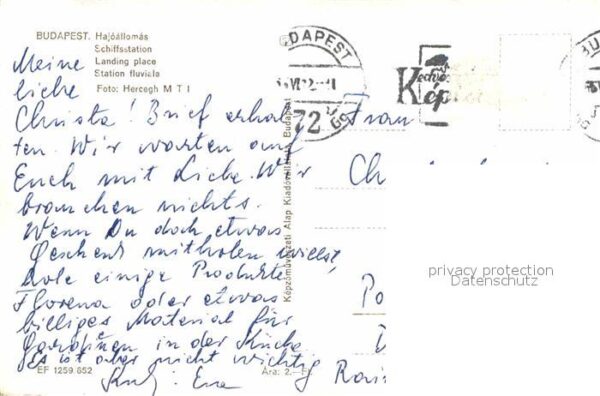 BUDAPEST. Hajóállomás
Schiffsstation
Landing place
Station fluviale
Foto: Hercegh M T I
Meine
liebe
Christa! Brief erhal-
ten. Wir warten auf
Euch mit Liebe. Wir
brauchen nichts.
Wenn Du doch etwas
Geschenk mitholen willst,
hole einige Produkte
Florena oder etwas
billiges Material für
in der Küche
Es ist aber nicht wichtig
Eva
EF 1259 652
Ára: 2.— Ft.
Képzőművészeti Alap Kiadóvállalata, Budapest
BUDAPEST
72
Frau
Ch
Po
privacy protection
Datenschutz
BU